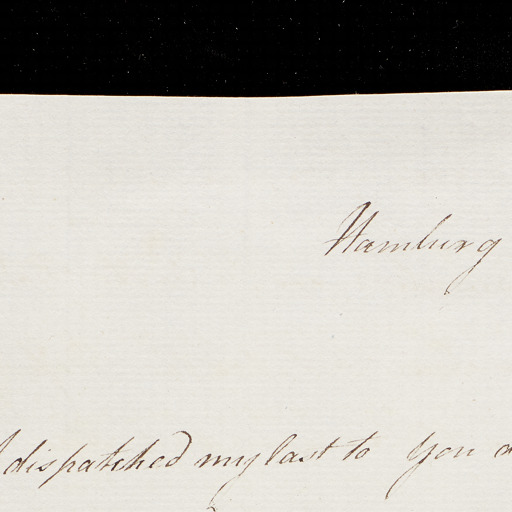 Hamburg
dispatched my last to you